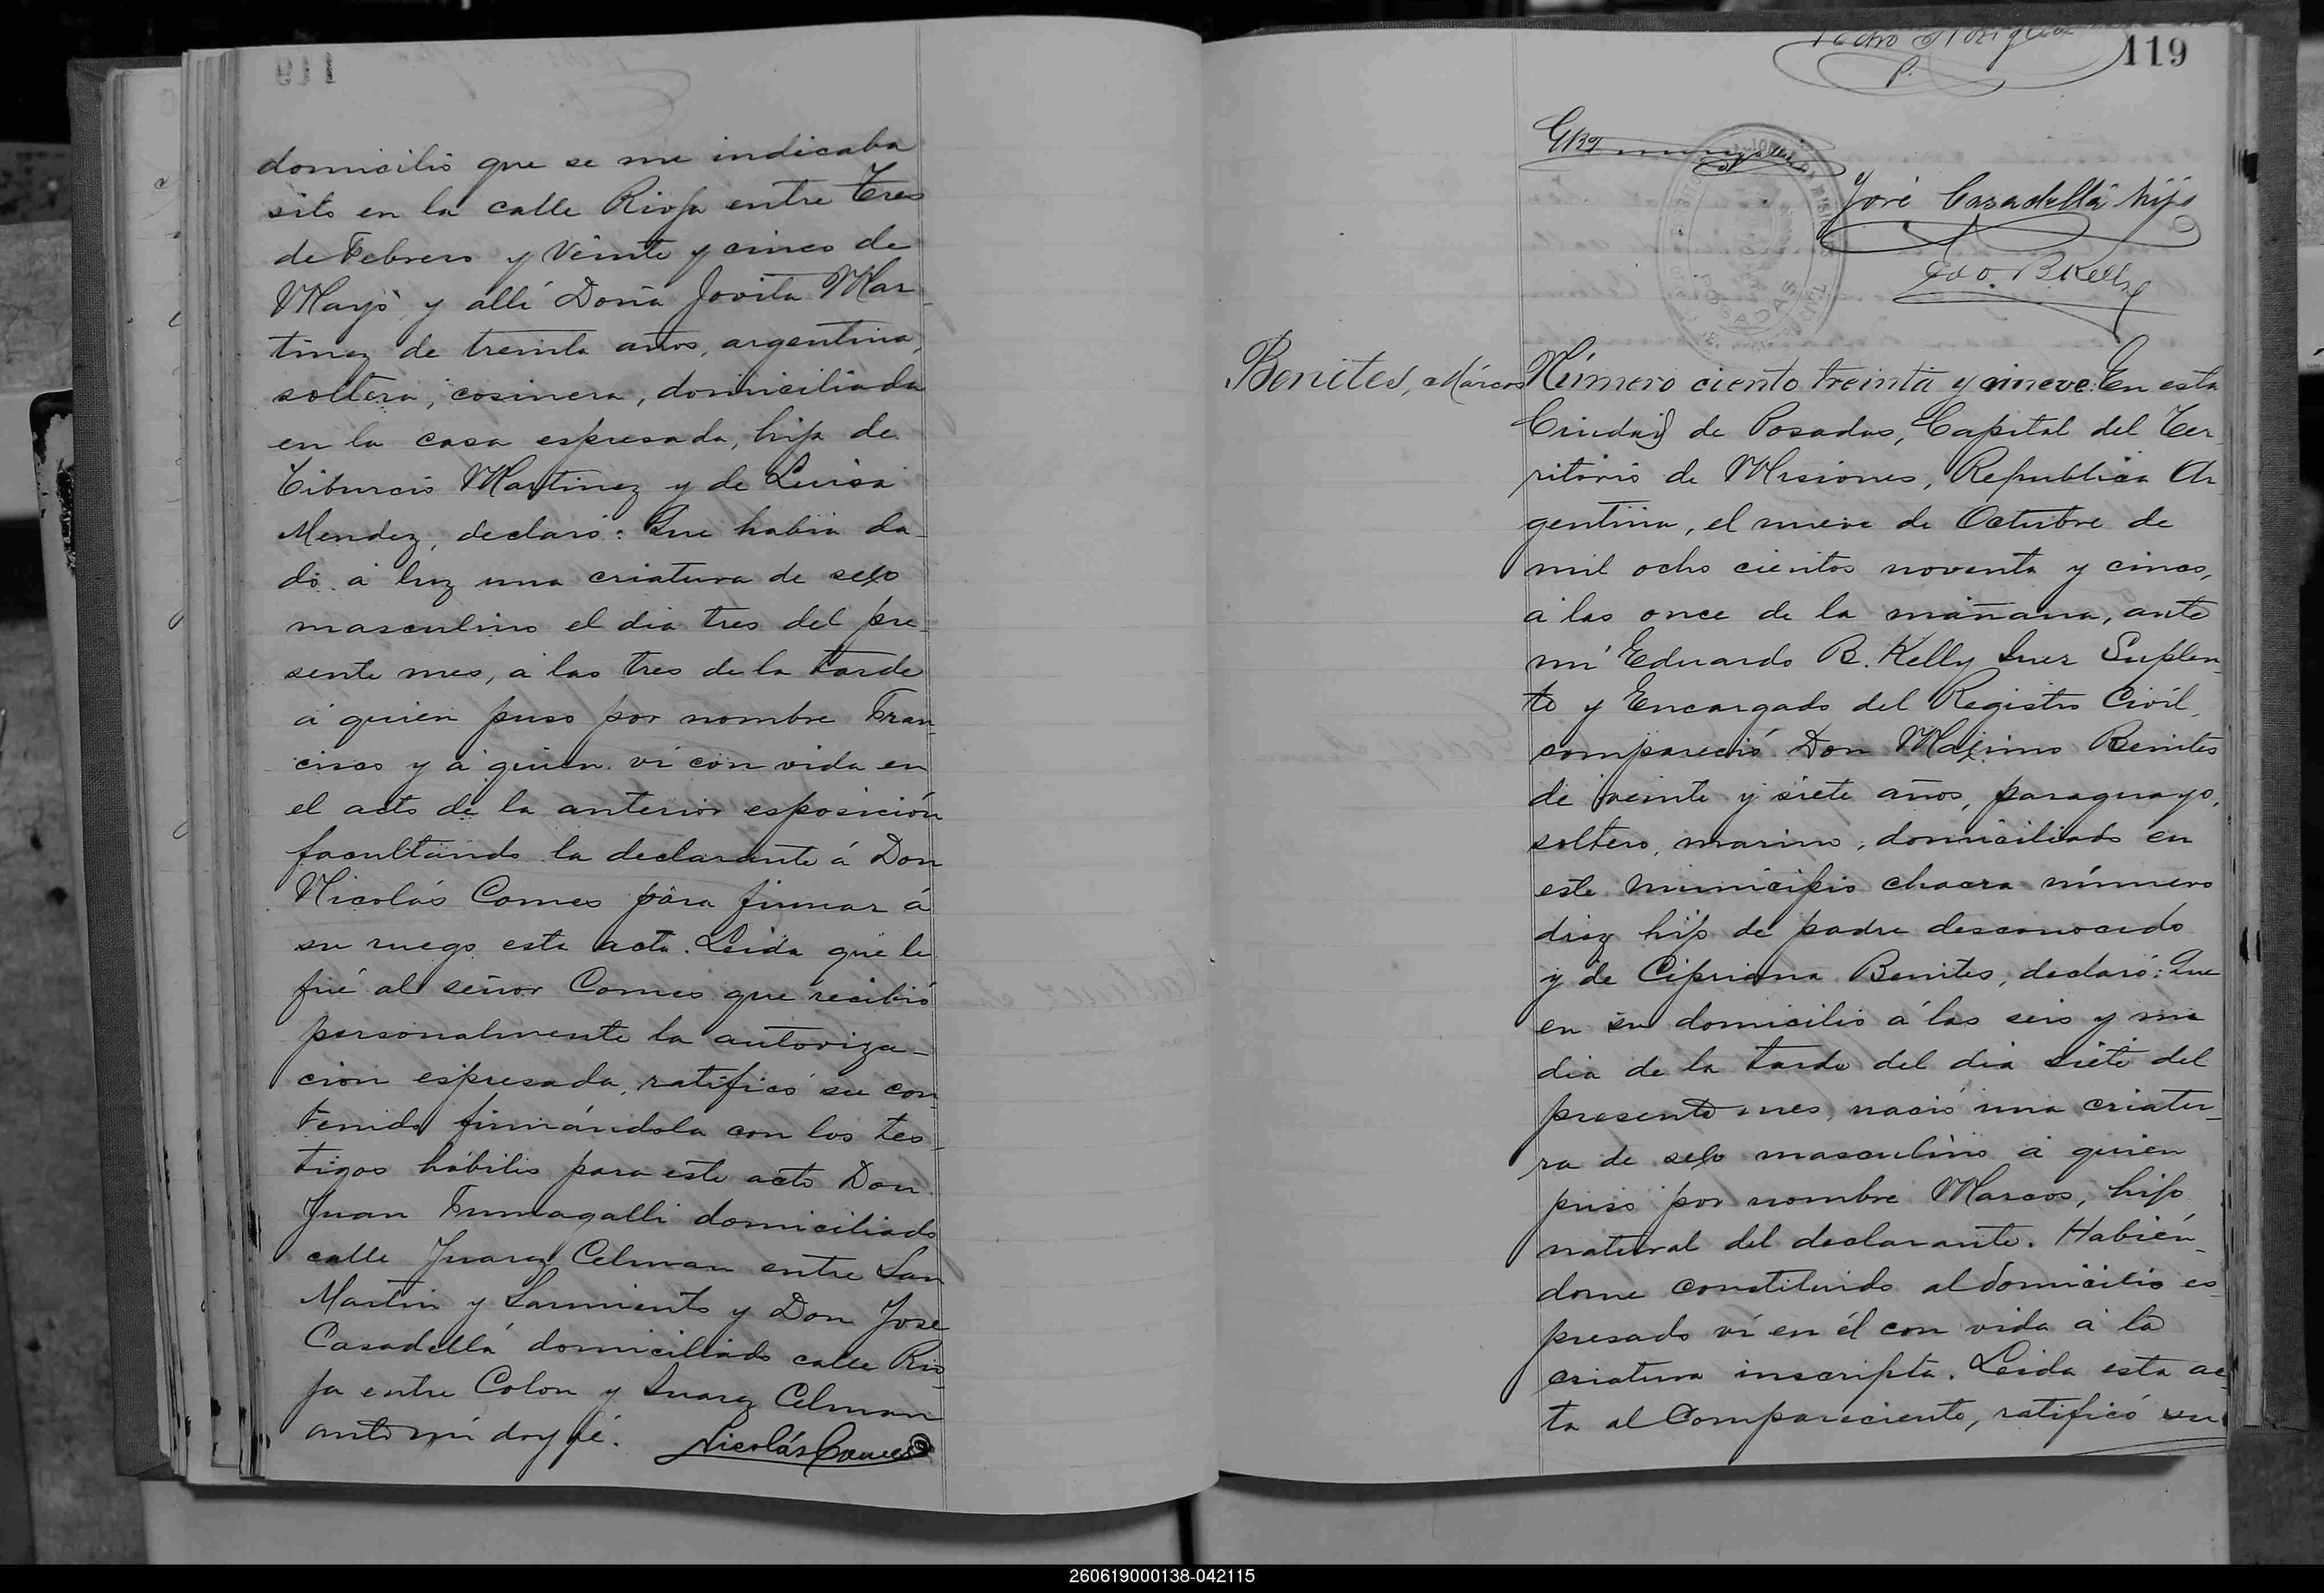 domicilio que se me indicaba
sito en la calle Rioja entre Tres
de Febrero y Veinte y cinco de
Mayo y allí Doña Jovita Mar-
tinez de treinta años, argentina,
soltera, cosinera, domiciliada
en la casa espresada, hija de
Tiburcio Martinez y de Luisa
Mendez, declaró: Que habia da-
do á luz una criatura de sexo
masculino el dia tres del pre-
sente mes, á las tres de la tarde
á quien puso por nombre Fran-
cisco y á quien ví con vida en
el acto de la anterior esposición
facultando la declarante á Don
Nicolás Comes para firmar á
su ruego esta acta. Leida que le
fué al señor Comes que recibió
personalmente la autoriza-
cion espresada, ratificó su con-
tenido firmándola con los tes-
tigos hábiles para este acto Don
Juan Fumagalli domiciliado
calle Juarez Celman entre San
Martin y Sarmiento y Don José
Casadellá domiciliado calle Rio-
ja entre Colon y Juarez Celman
ante mí doy fé. Nicolás Comes
119
José Casadellá hijo
Edo. B. Kelly
POSADAS
Benites, Márcos
Número ciento treinta y nueve. En esta
Ciudad de Posadas, Capital del Ter-
ritorio de Misiones, Republica Ar-
gentina, el nueve de Octubre de
mil ocho cientos noventa y cinco,
á las once de la mañana, ante
mí Eduardo B. Kelly Juez Suplen-
te y Encargado del Registro Civil,
compareció Don Maximo Benites
de veinte y siete años, paraguayo,
soltero, marino, domiciliado en
este municipio chacra número
diez hijo de padre desconocido
y de Cipriana Benites, declaró: Que
en su domicilio á las seis y me
dia de la tarde del dia siete del
presente mes, nació una criatu-
ra de sexo masculino á quien
puso por nombre Marcos, hijo
natural del declarante. Habién-
dome constituido al domicilio es-
presado ví en él con vida á la
criatura inscripta. Leida esta ac-
ta al Compareciente, ratificó su
260619000138-042115